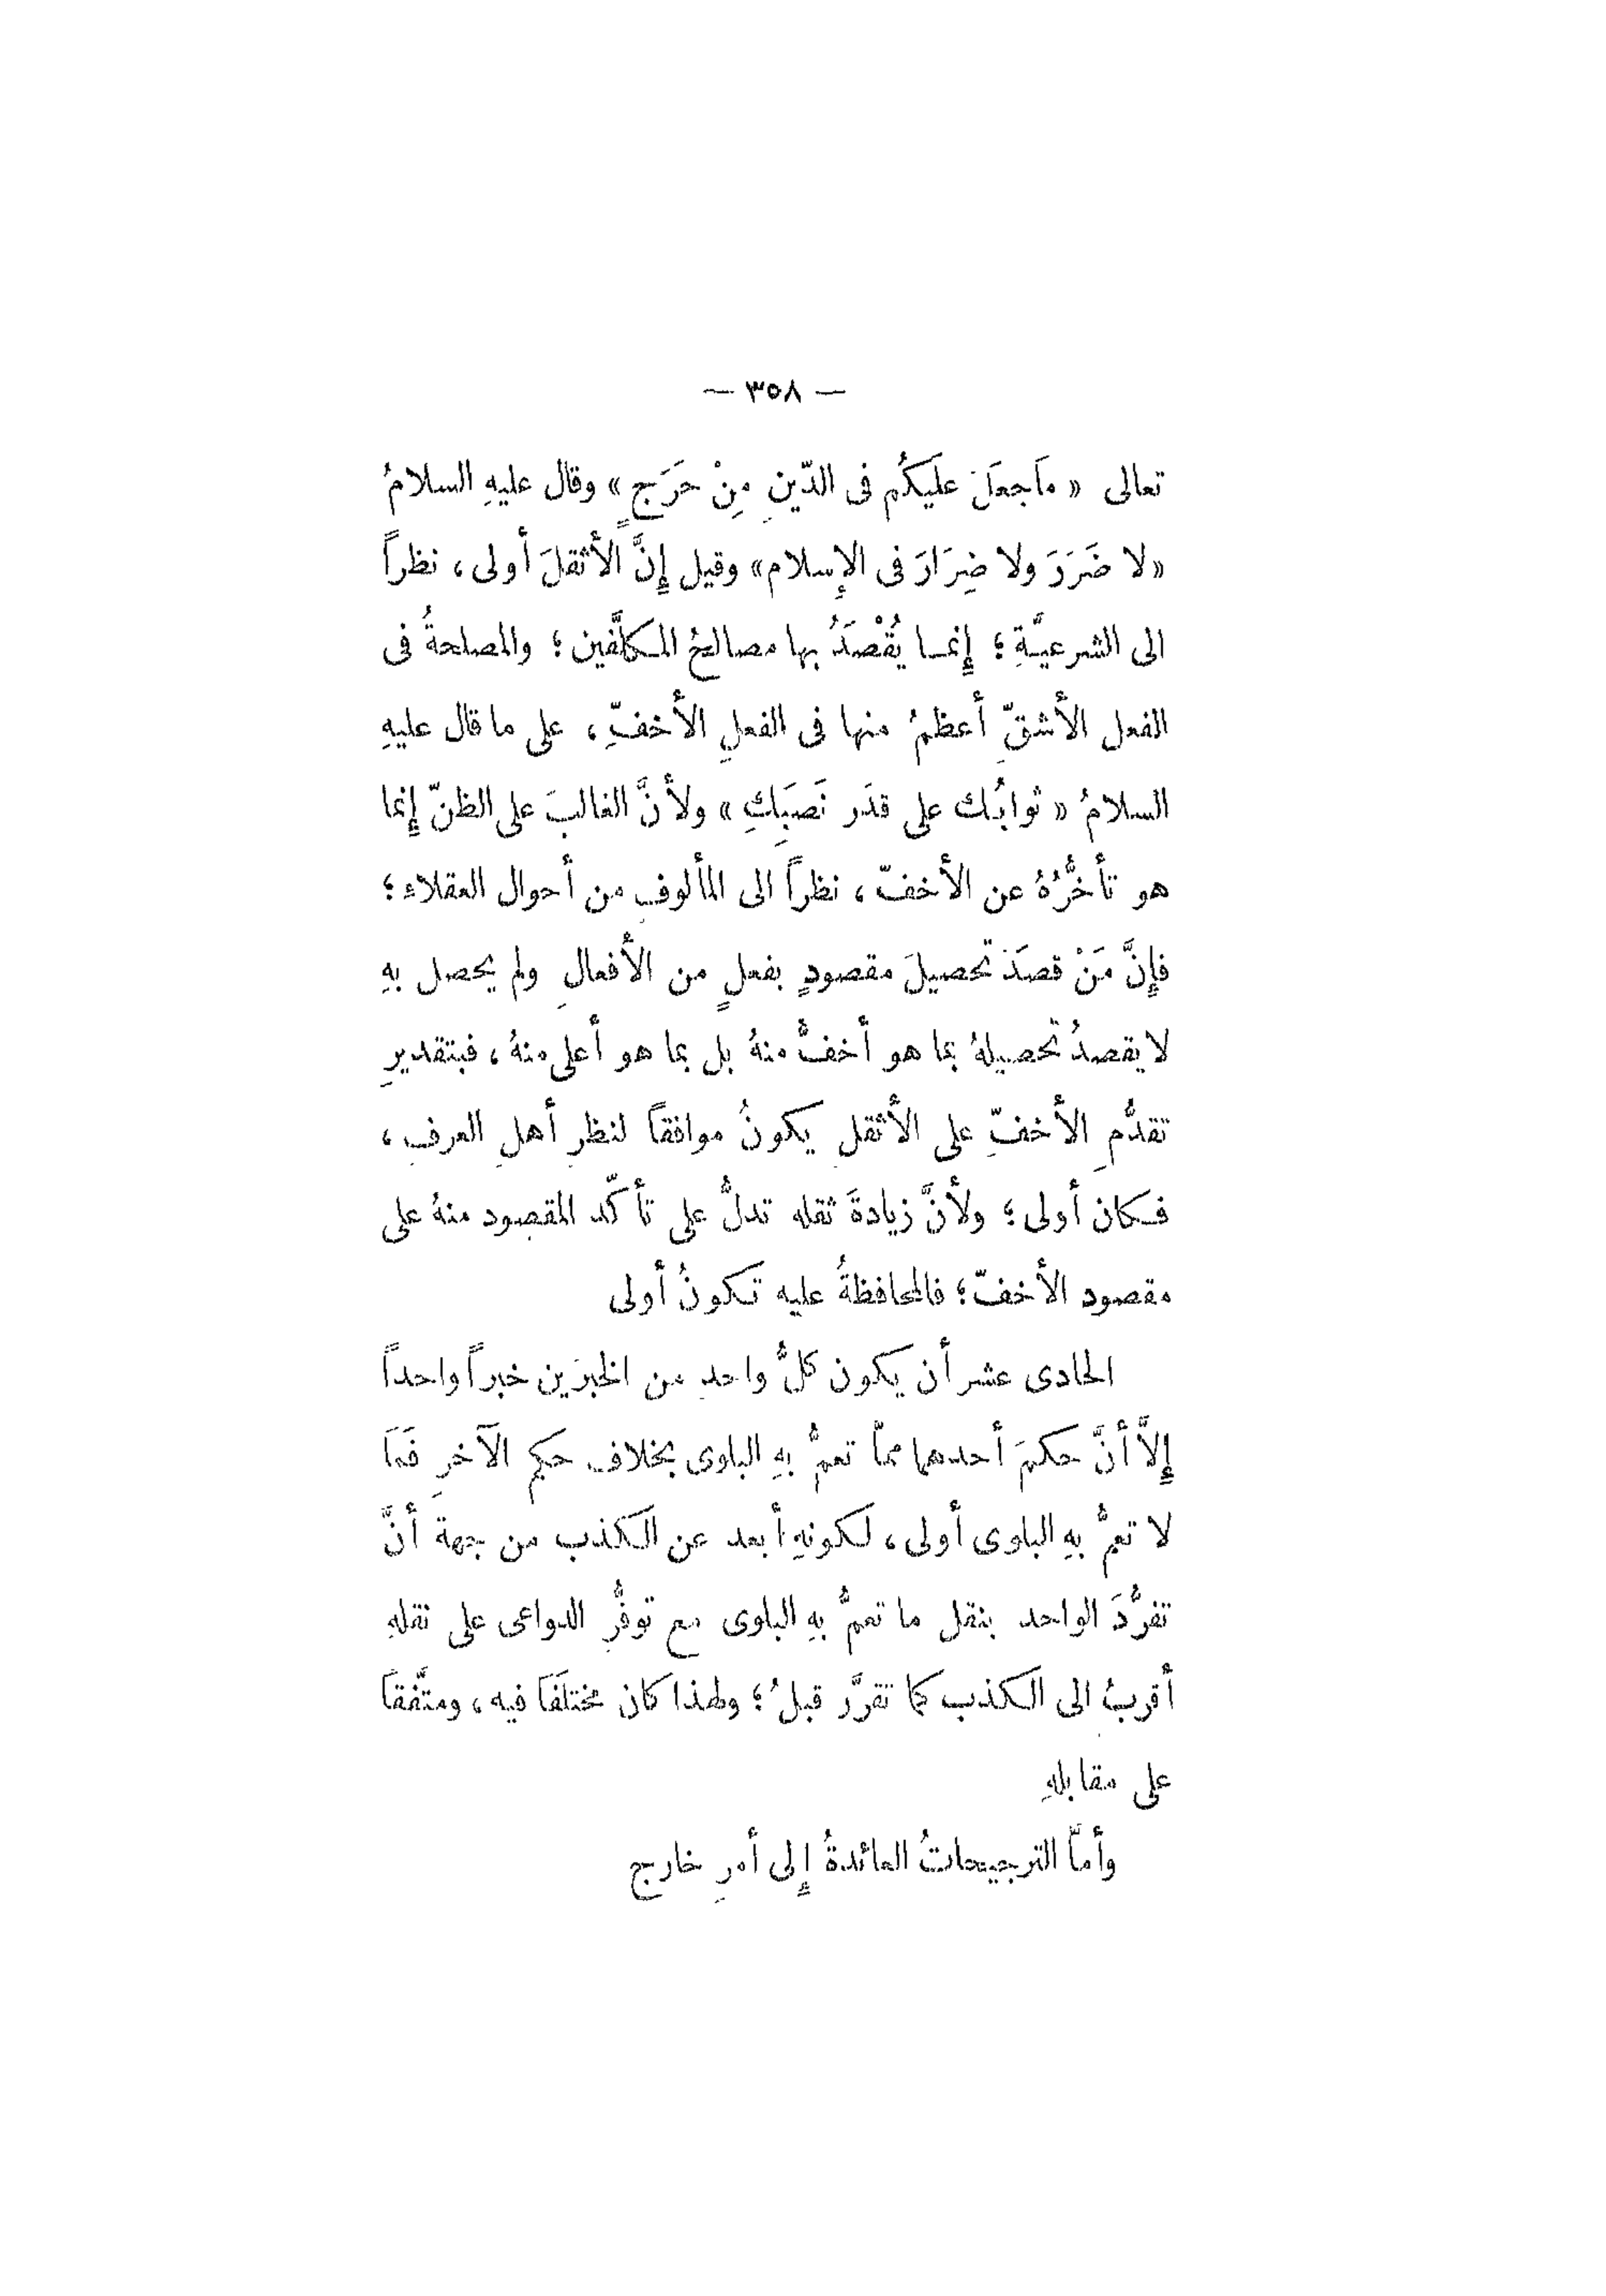 — ٣٥٨ —
تعالى « ماَجعَلَ عليكُم فى الدّينِ مِنْ حَرَجٍ » وقال عليهِ السلامُ
«لا ضَرَرَ ولا ضِرَارَ فى الإِسلام» وقيل إِنَّ الأثقلَ أولى، نظراً
الى الشرعيَّةِ؛ إِنما يُقْصَدُ بها مصالحُ المكلَّفين؛ والمصلحةُ فى
الفعل الأشقّ أعظمُ منها فى الفعلِ الأخفِّ، على ما قال عليهِ
السلامُ « ثوابُك على قدَر نَصَبِكِ » ولأنَّ الغالبَ على الظنّ إِنما
هو تأخُّرُهُ عن الأخفّ، نظراً الى المألوفِ من أحوال العقلاء؛
فإِنَّ مَنْ قصَدَ تحصيلَ مقصودٍ بفعلٍ من الأفعالِ ولم يحصل بهِ
لا يقصدُ تحصيلهُ بما هو أخفُّ منهُ بل بما هو أعلى منهُ، فبتقديرِ
تقدُّمِ الأخفِّ على الأثقلِ يكونُ موافقاً لنظرِ أهلِ العرفِ،
فكان أولى؛ ولأنَّ زيادةَ ثقله تدلُّ على تأكّد المقصود منهُ على
مقصود الأخفّ؛ فالمحافظةُ عليه تكونُ أولى
الحادى عشر أن يكون كلُّ واحدٍ من الخبرَين خبراً واحداً
إِلاَّ أنَّ حكمَ أحدهما مماّ تعمُّ بهِ البلوى بخلافِ حكمِ الآخرِ فَما
لا تعمُّ بهِ البلوى أولى، لكونهِ أبعد عن الكذب من جهة أنَّ
تفرُّدَ الواحد بنقل ما تعمُّ بهِ البلوى مع توفُّرِ الدواعى على نقلهِ
أقربُ الى الكذب كما تقرَّر قبلُ؛ ولهذا كان مختلَفاً فيه، ومتَّفقاً
على مقابلهِ
وأماّ الترجيحاتُ العائدةُ إِلى أمرٍ خارج